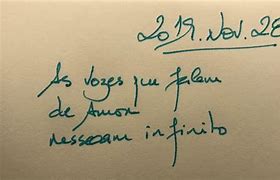 2019. Nov. 28
As vozes que falam
de Amor
ressoam infinito